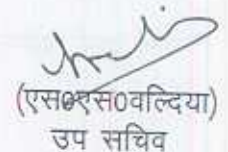 (एस०एस०वल्दिया)
उप सचिव